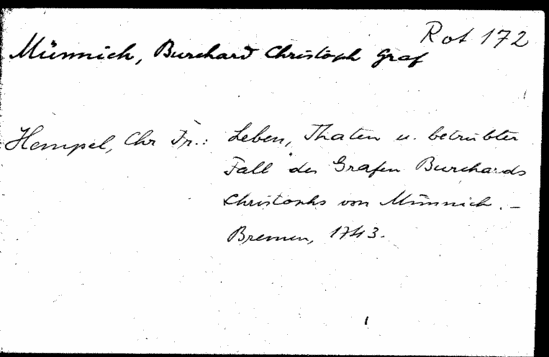 Rot 172
Münnich, Burchard Christoph Graf
Hempel, Chr Fr.: Leben, Thaten u. betrübter
Fall des Grafen Burchards
Christophs von Münnich. –
Bremen, 1743.